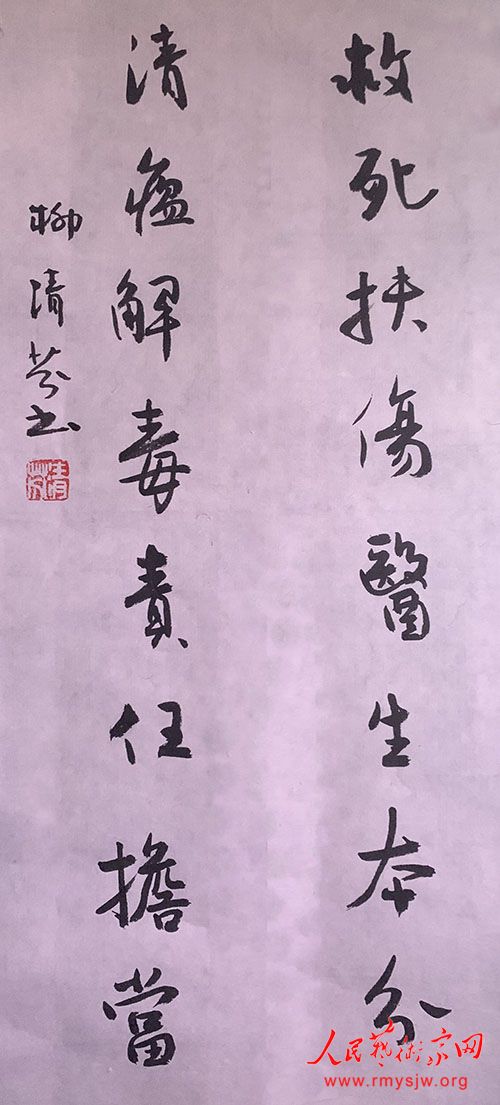 救死扶傷醫生本分
清瘟解毒責任擔當
柳清芬书
清芬
人民藝術家网
www.rmysjw.org